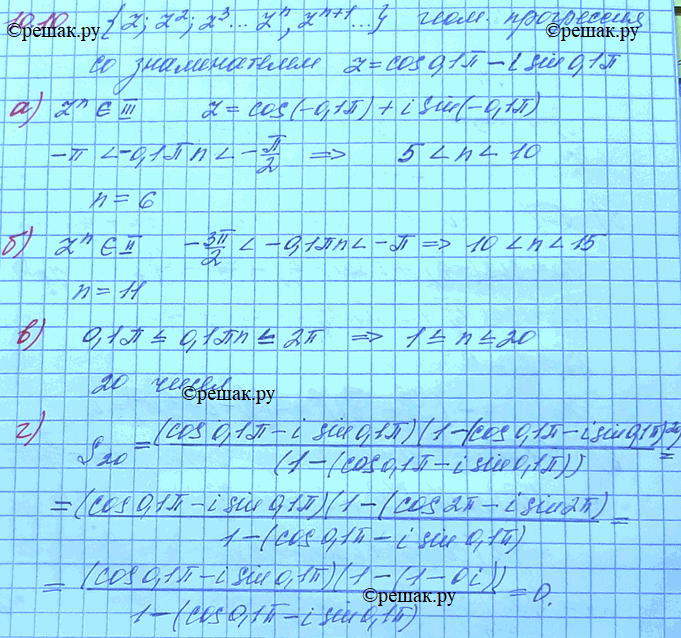 10.10 {z; z²; z³... zⁿ, zⁿ⁺¹...} геом. прогрессия
©решак.ру
со знаменателем z = cos 0,1π − i sin 0,1π
а) zⁿ ∈ III z = cos(−0,1π) + i sin(−0,1π)
−π < −0,1πn < −π/2 ⇒ 5 < n < 10
n = 6
©решак.ру
б) zⁿ ∈ II −3π/2 < −0,1πn < −π ⇒ 10 < n < 15
n = 11
©решак.ру
в) 0,1π ≤ 0,1πn ≤ 2π ⇒ 1 ≤ n ≤ 20
20 чисел
©решак.ру
г) S₂₀ = (cos 0,1π − i sin 0,1π)(1 − (cos 0,1π − i sin 0,1π)²⁰) / (1 − (cos 0,1π − i sin 0,1π)) =
= (cos 0,1π − i sin 0,1π)(1 − (cos 2π − i sin 2π) / 1 − (cos 0,1π − i sin 0,1π) =
= (cos 0,1π − i sin 0,1π)(1 − (1 − 0i)) / 1 − (cos 0,1π − i sin 0,1π) = 0.
©решак.ру